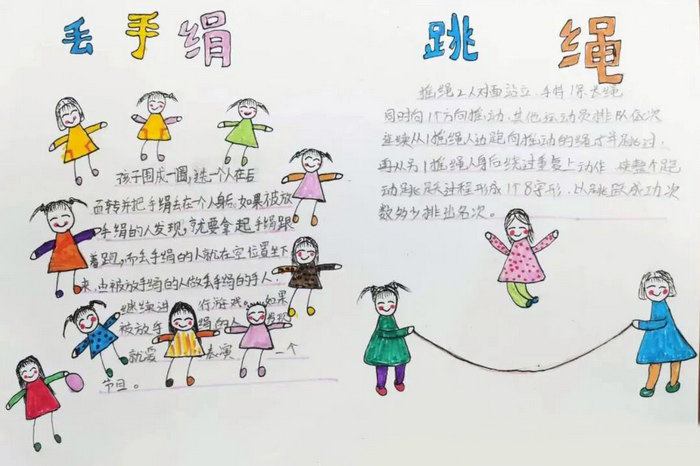 丢手绢
孩子围成一圈,选一个人在后
面转并把手绢丢在一个人身后,如果被放
手绢的人发现,就要拿起手绢跟
着跑,而丢手绢的人就在空位置坐下
来,由被放手绢的人做丢手绢的手人,
继续进行游戏。如果
被放手绢的人发现
就要表演一个
节目。
跳绳
摇绳2人对面站立,手持1条长绳
同时向1个方向摇动,其他运动员排队依次
连续从1摇绳人边跑向摇动的绳才并跳过,
再从另1摇绳人身后绕过重复上动作,使整个跑
动跳跃过程形成1个8字形,以跳跃成功次
数多少排出名次。